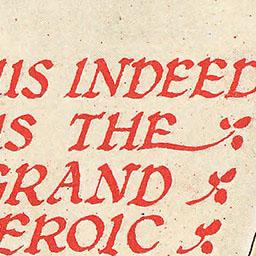 IS INDEED
IS THE
GRAND
EROIC